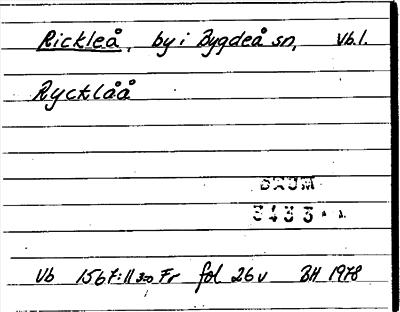 Rickleå, by i Bygdeå sn, Vb.l.
Rycklåå
DAUM
3433
Vb 1567:11 Fr fol 26v BH 1978